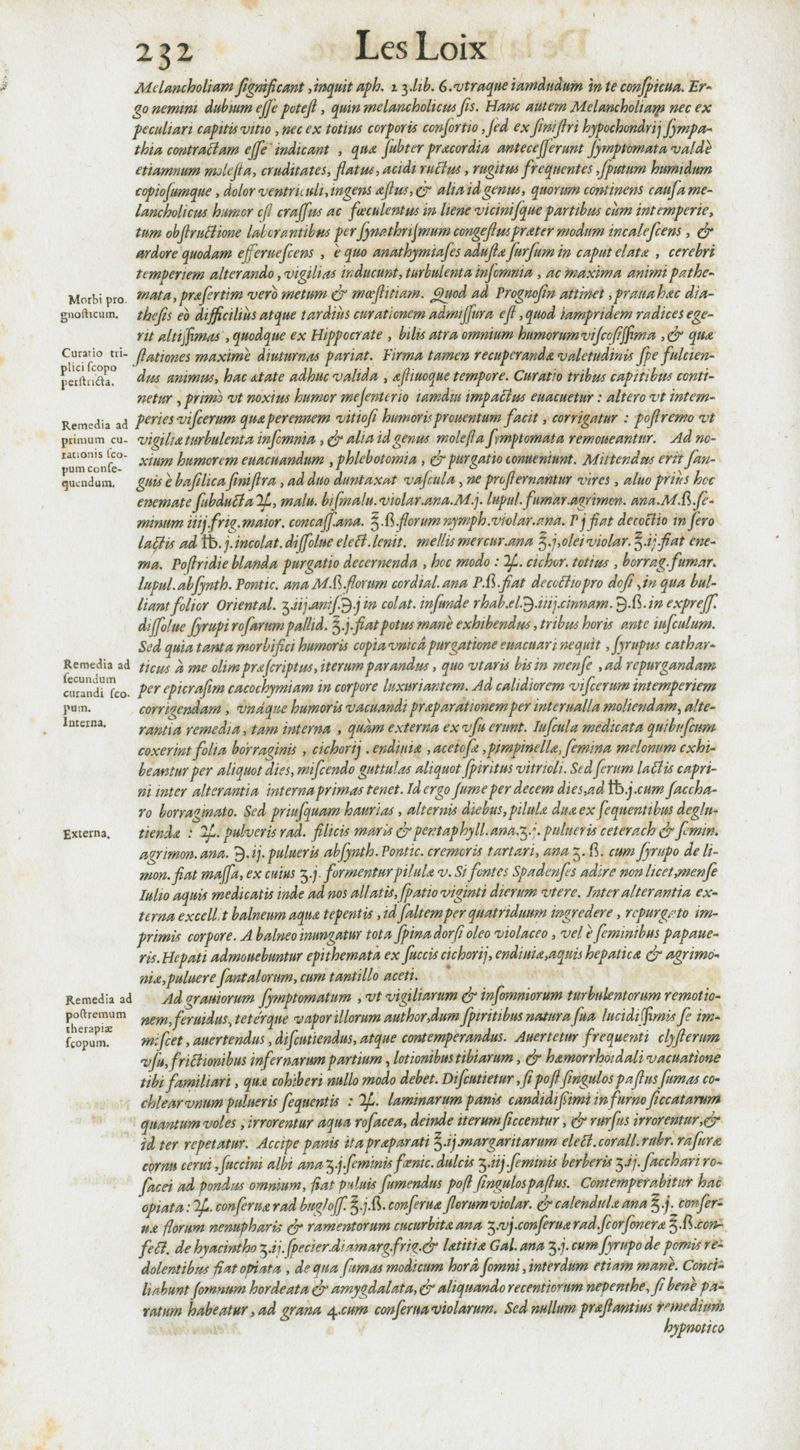 232 Les Loix
Melancholiam ſignificant, inquit aph. 23. lib. 6. vtraque iamdudum in te conſpicua. Er-
go nemini dubium eſſe poteſt, quin melancholicus ſis. Hanc autem Melancholiam nec ex
peculiari capitis vitio, nec ex totius corporis conſortio, ſed ex ſiniſtri hypochondrij ſympa-
thia contractam eſſe indicant, quæ ſubter præcordia anteceſſerunt ſymptomata valdè
etiamnum moleſta, cruditates, flatus, acidi ructus, rugitus frequentes, ſputum humidum
copioſumque, dolor ventriculi, ingens æſtus, & alia id genus, quorum continens cauſa me-
lancholicus humor eſt craſſus ac fœculentus in liene viciniſque partibus cùm intemperie,
tum obſtructione laborantibus per ſynathriſmum congeſtus præter modum incaleſcens, &
ardore quodam efferueſcens, è quo anathymiaſes aduſtæ ſurſum in caput elatæ, cerebri
temperiem alterando, vigilias inducunt, turbulenta inſomnia, ac maxima animi pathe-
Morbi pro
gnoſticum.
mata, præſertim verò metum & mœſtitiam. Quod ad Prognoſin attinet, praua hæc dia-
theſis eò difficiliùs atque tardiùs curationem admiſſura eſt, quod iampridem radices ege-
rit altiſſimas, quodque ex Hippocrate, bilis atra omnium humorum viſcoſiſſima, & quæ
Curatio tri-
plici ſcopo
perſtricta.
ſtationes maximè diuturnas pariat. Firma tamen recuperandæ valetudinis ſpe fulcien-
dus animus, hac ætate adhuc valida, æſtiuoque tempore. Curatio tribus capitibus conti-
netur, primò vt noxius humor meſenterio iamdiu impactus euacuetur : altero vt intem-
Remedia ad
primum cu-
rationis ſco-
pum conſe-
quendum.
peries viſcerum quæ perennem vitioſi humoris prouentum facit, corrigatur : poſtremo vt
vigiliæ turbulenta inſomnia, & alia id genus moleſta ſymptomata remoueantur. Ad no-
xium humorem euacuandum, phlebotomia, & purgatio conueniunt. Mittendus erit ſan-
guis è baſilica ſiniſtra, ad duo duntaxat vaſcula, ne proſternantur vires, aluo priùs hoc
enemate ſubducta ♃. malu. biſmalu. violar. ana. M. j. lupul. fumar. agrimon. ana. M. ß. ſe-
minum iiij. frig. maior. concaſſ. ana. ʒ̄. ß. florum nymph. violar. ana. P j fiat decoctio in ſero
lactis ad ℔. j. in colat. diſſolue elect. lenit. mellis mercur. ana ʒ̄. j, olei violar. ʒ̄. ij. fiat ene-
ma. Poſtridie blanda purgatio decernenda, hoc modo : ♃. cichor. totius, borrag. fumar.
lupul. abſynth. Pontic. ana M. ß. florum cordial. ana P. ß. fiat decoctio pro doſi, in qua bul-
liant folior Oriental. ʒ. iij. aniſ. ℈. j in colat. infunde rhab. el. ℈. iiij. cinnam. ℈. ß. in expreſſ.
diſſolue ſyrupi roſarum pallid. ʒ̄. j. fiat potus manè exhibendus, tribus horis ante iuſculum.
Sed quia tanta morbifici humoris copia vnicâ purgatione euacuari nequit, ſyrupus cathar-
Remedia ad
ſecundum
curandi ſco-
pum.
Interna.
ticus à me olim præſcriptus, iterum parandus, quo vtaris bis in menſe, ad repurgandam
per epicraſim cacochymiam in corpore luxuriantem. Ad calidiorem viſcerum intemperiem
corrigendam, vnáque humoris vacuandi præparationem per interualla moliendam, alte-
rantia remedia, tam interna, quàm externa ex vſu erunt. Iuſcula medicata quibuſcum
coxerint folia borraginis, cichorij. endiuiæ, acetoſæ, pimpinellæ, ſemina melonum exhi-
beantur per aliquot dies, miſcendo guttulas aliquot ſpiritus vitrioli. Sed ſerum lactis capri-
ni inter alterantia interna primas tenet. Id ergo ſume per decem dies, ad ℔. j. cum ſaccha-
ro borraginato. Sed priuſquam haurias, alternis diebus, pilulæ duæ ex ſequentibus deglu-
Externa.
tiendæ : ♃. pulueris rad. filicis maris & pentaphyll. ana. ʒ. j. pulueris ceterach & ſemin.
agrimon. ana. ℈. ij. pulueris abſynth. Pontic. cremoris tartari, ana ʒ. ß. cum ſyrupo de li-
mon. fiat maſſa, ex cuius ʒ. j. formentur pilulæ v. Si fontes Spadenſes adire non licet, menſe
Iulio aquis medicatis inde ad nos allatis, ſpatio viginti dierum vtere. Inter alterantia ex-
terna excellit balneum aquæ tepentis, id ſaltem per quatriduum ingredere, repurgato im-
primis corpore. A balneo inungatur tota ſpina dorſi oleo violaceo, vel è ſeminibus papaue-
ris. Hepati admouebuntur epithemata ex ſuccis cichorij, endiuiæ, aquis hepaticæ & agrimo-
niæ, puluere ſantalorum, cum tantillo aceti.
Remedia ad
poſtremum
therapiæ
ſcopum.
Ad grauiorum ſymptomatum, vt vigiliarum & inſomniorum turbulentorum remotio-
nem, feruidus, tetérque vapor illorum author, dum ſpiritibus natura ſua lucidiſſimis ſe im-
miſcet, auertendus, diſcutiendus, atque contemperandus. Auertetur frequenti clyſterum
vſu, frictionibus infernarum partium, lotionibus tibiarum, & hæmorrhoidali vacuatione
tibi familiari, quæ cohiberi nullo modo debet. Diſcutietur, ſi poſt ſingulos paſtus ſumas co-
chlear vnum pulueris ſequentis : ♃. laminarum panis candidiſſimi in furno ſiccatarum
quantum voles, irrorentur aqua roſacea, deinde iterum ſiccentur, & rurſus irrorentur, &
id ter repetatur. Accipe panis ita præparati ʒ̄. ij. margaritarum elect. corall. rubr. raſuræ
cornu cerui, ſuccini albi ana ʒ. j. ſeminis fœnic. dulcis ʒ. iij. ſeminis berberis ʒ. ij. ſacchari ro-
ſacei ad pondus omnium, fiat puluis ſumendus poſt ſingulos paſtus. Contemperabitur hac
opiata : ♃. conſeruæ rad bugloſſ. ʒ̄. j. ß. conſeruæ florum violar. & calendulæ ana ʒ̄. j. conſer-
uæ florum nenupharis & ramentorum cucurbitæ ana ʒ. vj. conſeruæ rad. ſcorſoneræ ʒ̄. ß. con-
fect. de hyacintho ʒ. ij. ſpecier. diamarg. frig. & lætitiæ Gal. ana ʒ. j. cum ſyrupo de pomis re-
dolentibus fiat opiata, de qua ſumas modicum horâ ſomni, interdum etiam manè. Conci-
liabunt ſomnum hordeata & amygdalata, & aliquando recentiorum nepenthe, ſi benè pa-
ratum habeatur, ad grana 4. cum conſerua violarum. Sed nullum præſtantius remedium
hypnotico